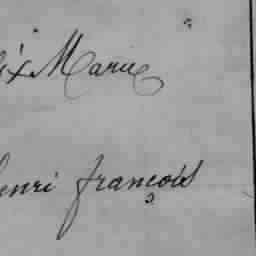 ix Marie
enri françois